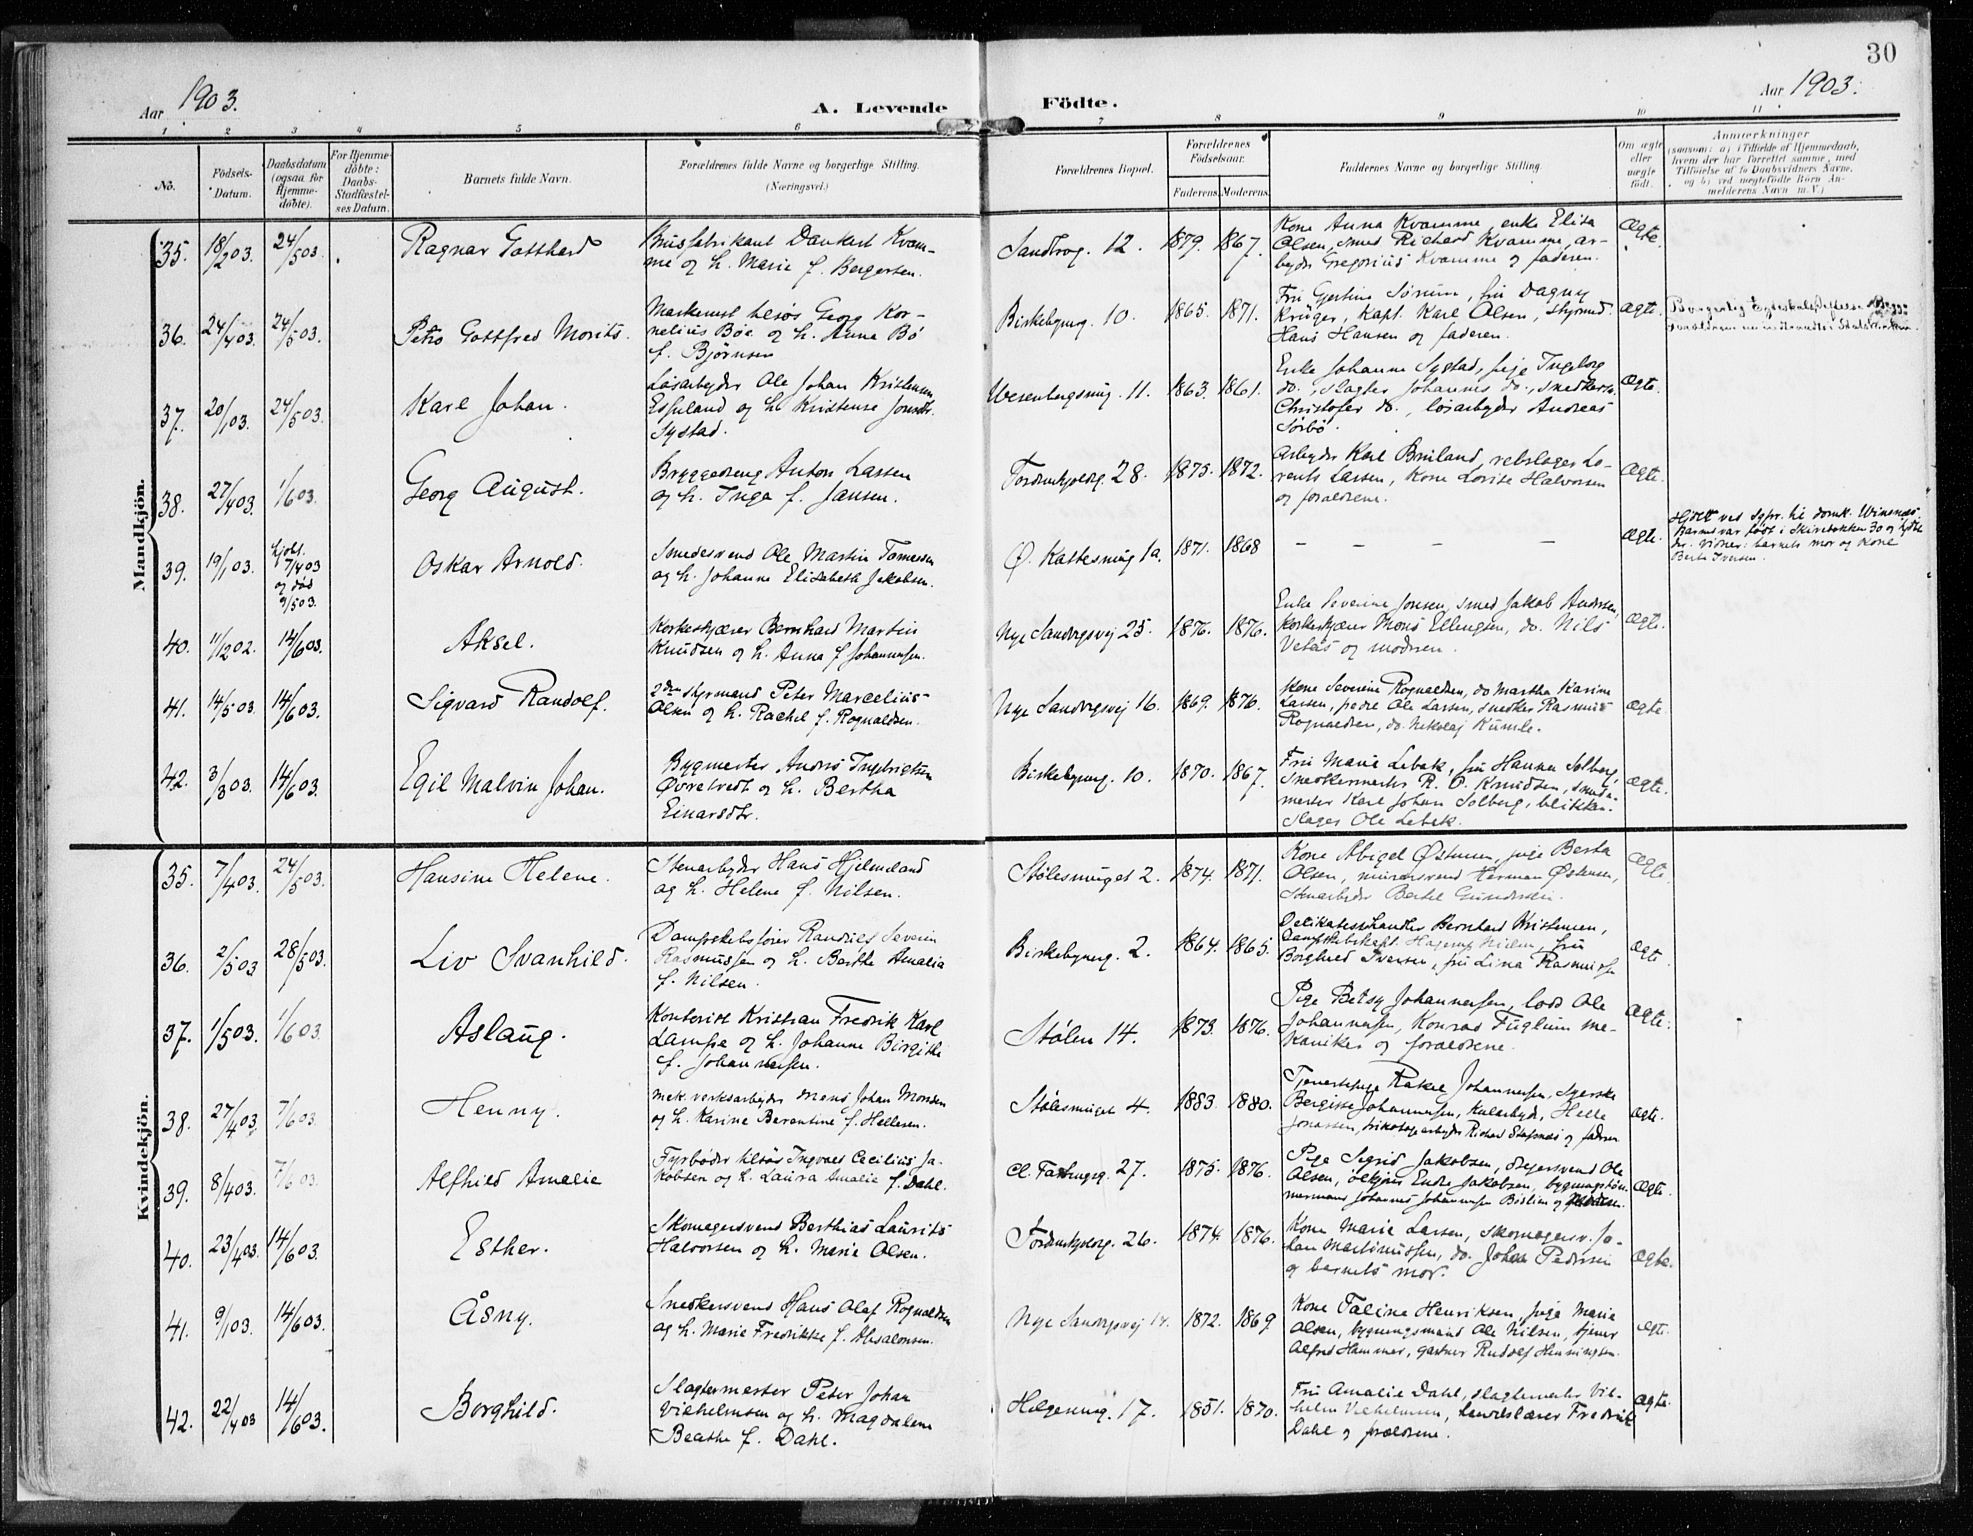 30
Aar 1903.
A. Levende Födte.
Aar 1903.
1 2 3 4 5 6 7 8 9 10 11
No.
Födsels-Datum.
Daabsdatum (ogsaa for Hjemme-döbte).
For Hjemme-döbte: Daabs-Stadfæstel-ses Datum.
Barnets fulde Navn.
Forældrenes fulde Navne og borgerlige Stilling.
(Næringsvei.)
Forældrenes Bopæl.
Forældrenes Födselsaar.
Faderens. Moderens.
Faddernes Navne og borgerlige Stilling.
Om ægte eller uægte födt.
Anmærkninger
(saasom: a) i Tilfælde af Hjemmedaab,
hvem der har forrettet samme, med
Tilföielse af to Daabsvidners Navne,
og b) ved uægtefödte Börn An-
melderens Navn m. V.)
Mandkjön.
35. 18/2 03. 24/5 03. Ragnar Gotthard
Brusfabrikant Dankert Kvam-
me og h. Marie f. Bergersen.
Sandbrog. 12. 1879. 1867.
Kone Anna Kvamme, enke Elisa
Olsen, smed Richard Kvamme, ar-
beyder Gregorius Kvamme og faderen.
Ægte.
36. 24/4 03. 24/5 03. Petro Gottfred Morits.
Maskinist tilsös Georg Kor-
nelius Böe og h. Anna Bö
f. Björnsen
Birkebeynerg. 10. 1865. 1871.
Fru Gjertine Sörum, fru Dagny
Krüger, kapt. Karl Olsen, styrmd.
Hans Hansen og faderen.
Ægte.
Borgerlig Egteskab
37. 20/1 03. 24/5 03. Karl Johan.
Lösarbeyder Ole Johan Kristensen
og h. Kristense Jonsdtr.
Systad.
Wesenbergsmug. 11. 1863. 1861.
Enke Johanne Systad, pige Ingeborg
do., slagter Johannes do., snedkersv.
Christofer do., lösarbeyder Andreas
Sörbö.
Ægte.
38. 27/4 03. 1/6 03. Georg August.
Bryggedreng Anton Larsen
og h. Inga f. Jansen.
28. 1875. 1872.
Arbeyder Karl Bruland, rebslager Lo-
rents Larsen, kone Lovise Halvorsen
og forældrene.
Ægte.
39. 19/1 03. hjdt. 7/4 03 og död 9/5 03. Oskar Arnold.
Smedesvend Ole Martin Tomesen
og h. Johanne Elisabeth Jakobsen.
Ö. Kattesmug 1a. 1871. 1868
— — — —
Ægte.
Hjdöbt ved sypr. til domk. Winsnæs.
Barnet var födt i Skivebakken 30 og
der. Vidner: barnets mor og kone
Berta Iversen.
40. 11/12 02. 14/6 03. Aksel.
Korkeskjærer Bernhard Martin
Knudsen og h. Anna f. Johannesen.
Nye Sandvigsvej 25. 1876. 1876.
Enke Severine Jonsen, smed Jakob Andersen,
korkeskjærer Mons Ellingsen, do. Nils
Vetås og modren.
Ægte.
41. 14/5 03. 14/6 03. Sigvard Randolf.
2den styrmand Peter Marcelius
Olsen og h. Rachel f. Rognaldsen.
Nye Sandvigsvej 16. 1869. 1876.
Kone Severine Rognaldsen, do Martha Karine
Larsen, Ole Larsen, snedker Rasmus
Rognaldsen, do. Nikolaj Kumle.
Ægte
42. 3/3 03. 14/6 03. Egil Malvin Johan.
Bygmester Andrs Ingebrigtsen
Övretvedt og h. Bertha
Einarsdtr.
Birkebeynerg. 10. 1870. 1867.
Fru Marie Lebek, fru Hanna Solberg,
snedkermester R. O. Knudsen, smede-
mester Karl Johan Solberg, blikken-
slager Ole Lebek.
Ægte.
Kvindekjön.
35. 7/4 03. 24/5 03. Hansine Helene.
Stenarbeyder Hans Hjelmeland
og h. Helene f. Nilsen.
Stölesmuget 2. 1874. 1871.
Kone Abigel Östensen, pige Berta
Olsen, murersvend Herman Östensen,
stenarbeyder Bertel Gundersen.
Ægte.
36. 2/5 03 28/5 03. Liv Svanhild.
Dampskibsförer Randulf Severin
Rasmussen og h. Berthe Amalia
f. Nilsen.
Birkebeynerg. 2. 1864. 1865.
Delikatessehandler Bernhard Kristensen,
dampskibskapt. Nilsen, fru
Borghild Iversen, fru Lina Rasmussen
Ægte
37. 1/5 03. 1/6 03 Aslaug.
Kontorist Kristian Fredrik Karl
Lampe og h. Johanne Birgithe
f. Johannessen.
Stölen 14. 1873. 1876.
Pige Betsy Johannessen, lods Ole
Johannessen, Konrad Fuglum me-
kaniker og forældrene.
Ægte.
38. 27/4 03. 7/6 03. Henny.
Mek. verksarbeyder Mens Johan Monsen
og h. Karine Berentine f. Hellesen.
Stölesmuget 4. 1883. 1880.
Tjenestepige Rakel Johannessen, syerske
Bergitte Johannessen, kularbeyd. Helle
Jonassen, trikotagearbeyder Richard og faderen
Ægte.
39. 8/4 03. 7/6 03. Alfhild Amalie
Fyrböder tilsös Ingvald Cecilius Ja-
kobsen og h. Laura Amalie f. Dahl.
27. 1875. 1876.
Pige Sigrid Jakobsen, dreyersvend Ole
Olsen, Endre Jakobsen, bygningstöm-
mermand Johannes Johannessen og
Ægte.
40. 23/4 03. 14/6 03. Esther.
Skomagersvend Berthias Laurits
Halvorsen og h. Marie Olsen.
26. 1874 1876.
Kone Marie Larsen, skomagersv. Jo-
han Martinussen, do. Johan Pedersen
og barnets mor.
Ægte.
41. 9/1 03. 14/6 03. Åsny.
Snedkersvend Hans Olaf Rognaldsen
og h. Marie Fredrikke f. Absalonsen.
Nye Sandvigsvej 14. 1872. 1869
Kone Taline Henriksen, pige Marie
Olsen, bygningsmand Ole Nilsen, tjener
Alfred Hammer, gartner Rudolf Henningsen.
Ægte.
42. 22/4 03 14/6 03. Borghild.
Slagtermester Peter Johan
Vilhelmsen og h. Magdalene
Beathe f. Dahl.
Helgesmug. 17. 1851. 1870.
Fru Amalie Dahl, slagtermester Vil-
helm Vilhelmsen, Fredrik
Dahl og forældrene.
Ægte.